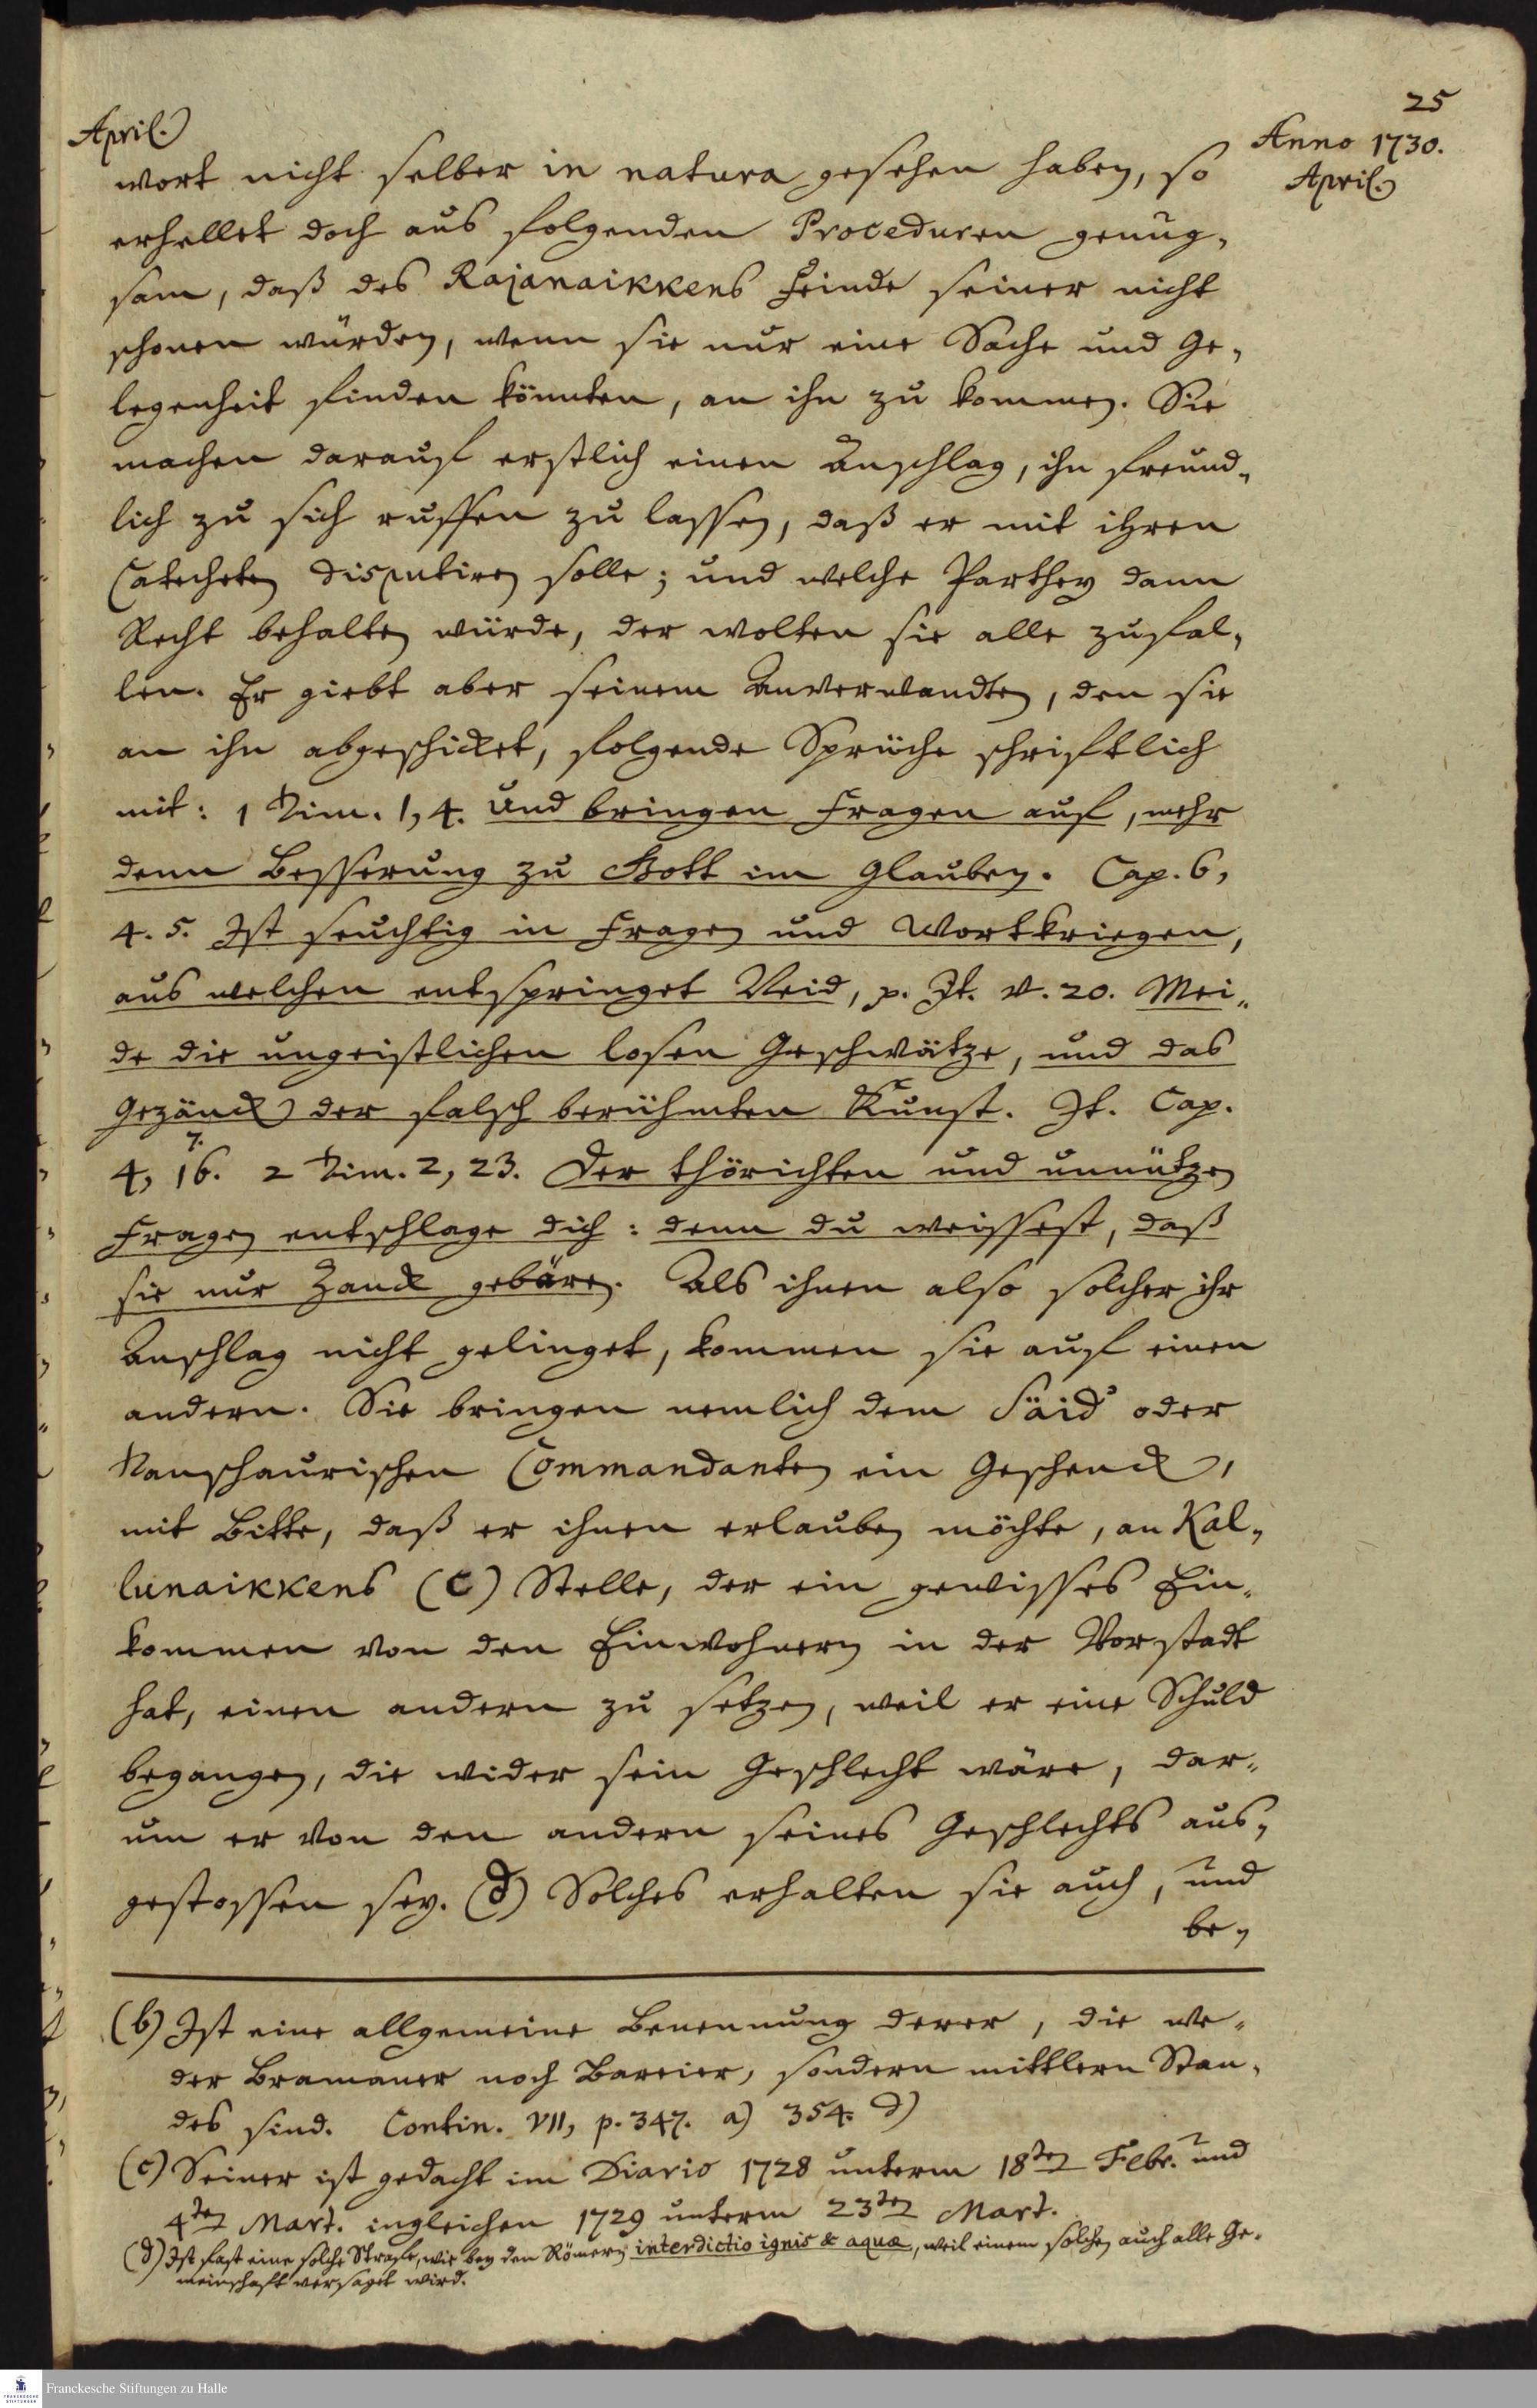 25
April.
Anno 1730.
April.
wort nicht selber in natura gesehen haben, so
erhellet doch aus folgenden Proceduren genug-
sam, daß des Rajanaikkens Feinde seiner nicht
schonen würden, wenn sie nur eine Sache und Ge-
legenheit finden könnten, an ihn zu kommen. Sie
machen darauf erstlich einen Anschlag, ihn freund-
lich zu sich ruffen zu lassen, daß er mit ihren
Catecheten disputiren solle; und welche Parthey dann
Recht behalten würde, der wolten sie alle zufal-
len. Er giebt aber seinem Anverwandten, den sie
an ihn abgeschicket, folgende Sprüche schriftlich
mit: 1 Tim. 1, 4. und bringen Fragen auf, mehr
denn Besserung zu Gott im Glauben. Cap. 6,
4. 5. Ist seuchtig in Fragen und Wortkriegen,
aus welchen entspringet Neid, p. It. v. 20. Mei-
de die ungeistlichen losen Geschwätze, und das
Gezänck der falsch berühmten Kunst. It. Cap.
4, 7. 16. 2 Tim. 2, 23. Der thörichten und unnützen
Fragen entschlage dich: denn du weissest, daß
sie nur Zanck gebären. Als ihnen also solcher ihr
Anschlag nicht gelinget, kommen sie auf einen
andern. Sie bringen nemlich dem Säid oder
Tanschaurischen Commandanten ein Geschenck,
mit Bitte, daß er ihnen erlauben möchte, an Kal-
lunaikkens (c) Stelle, der ein gewisses Ein-
kommen von den Einwohnern in der Vorstadt
hat, einen andern zu setzen, weil er eine Schuld
begangen, die wider sein Geschlecht wäre, dar-
um er von den andern seines Geschlechts aus-
gestossen sey. (d) Solches erhalten sie auch, und
be-
(b) Ist eine allgemeine Benennung derer, die we-
der Bramaner noch Bareier, sondern mittlern Stan-
des sind. Contin. VII, p. 347. a) 354. d)
(c) Seiner ist gedacht im Diario 1728 unterm 18ten Febr. und
4ten Mart. ingleichen 1729 unterm 23ten Mart.
(d) Ist fast eine solche Strafe, wie bey den Römern interdictio ignis & aquæ, weil einem solchen auch alle Ge-
meinschaft versaget wird.
FRANCKESCHE STIFTUNGEN
Franckesche Stiftungen zu Halle